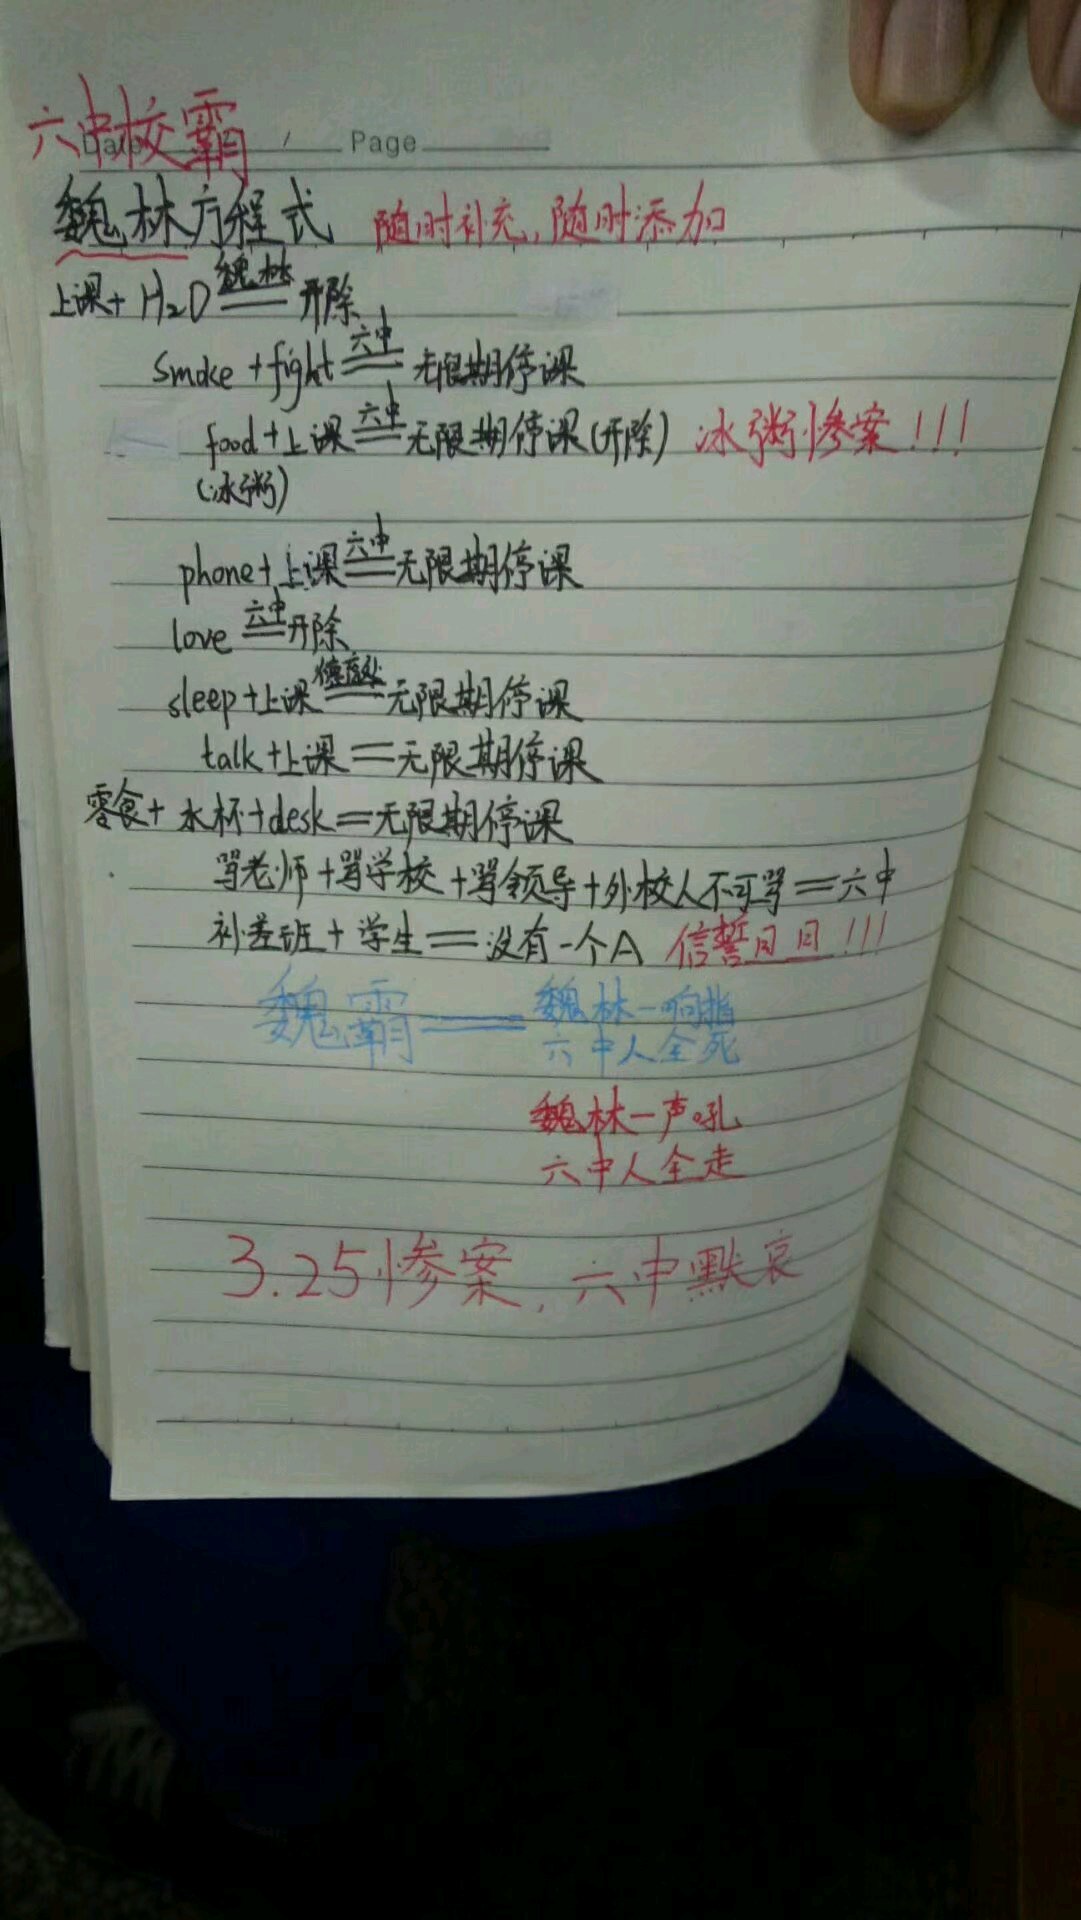 六中校霸
Date / Page
魏林方程式 随时补充,随时添加
魏林
上课+H₂O══开除
六中
smoke+fight══无限期停课
六中
food+上课══无限期停课(开除) 冰粥惨案!!!
(冰粥)
六中
phone+上课══无限期停课
六中
love══开除
德育处
sleep+上课══无限期停课
talk+上课══无限期停课
零食+水杯+desk══无限期停课
骂老师+骂学校+骂领导+外校人不可骂══六中
补差班+学生══没有一个A 信誓日日!!!
魏霸══魏林一响指
六中人全死
魏林一声吼
六中人全走
3.25惨案,六中默哀